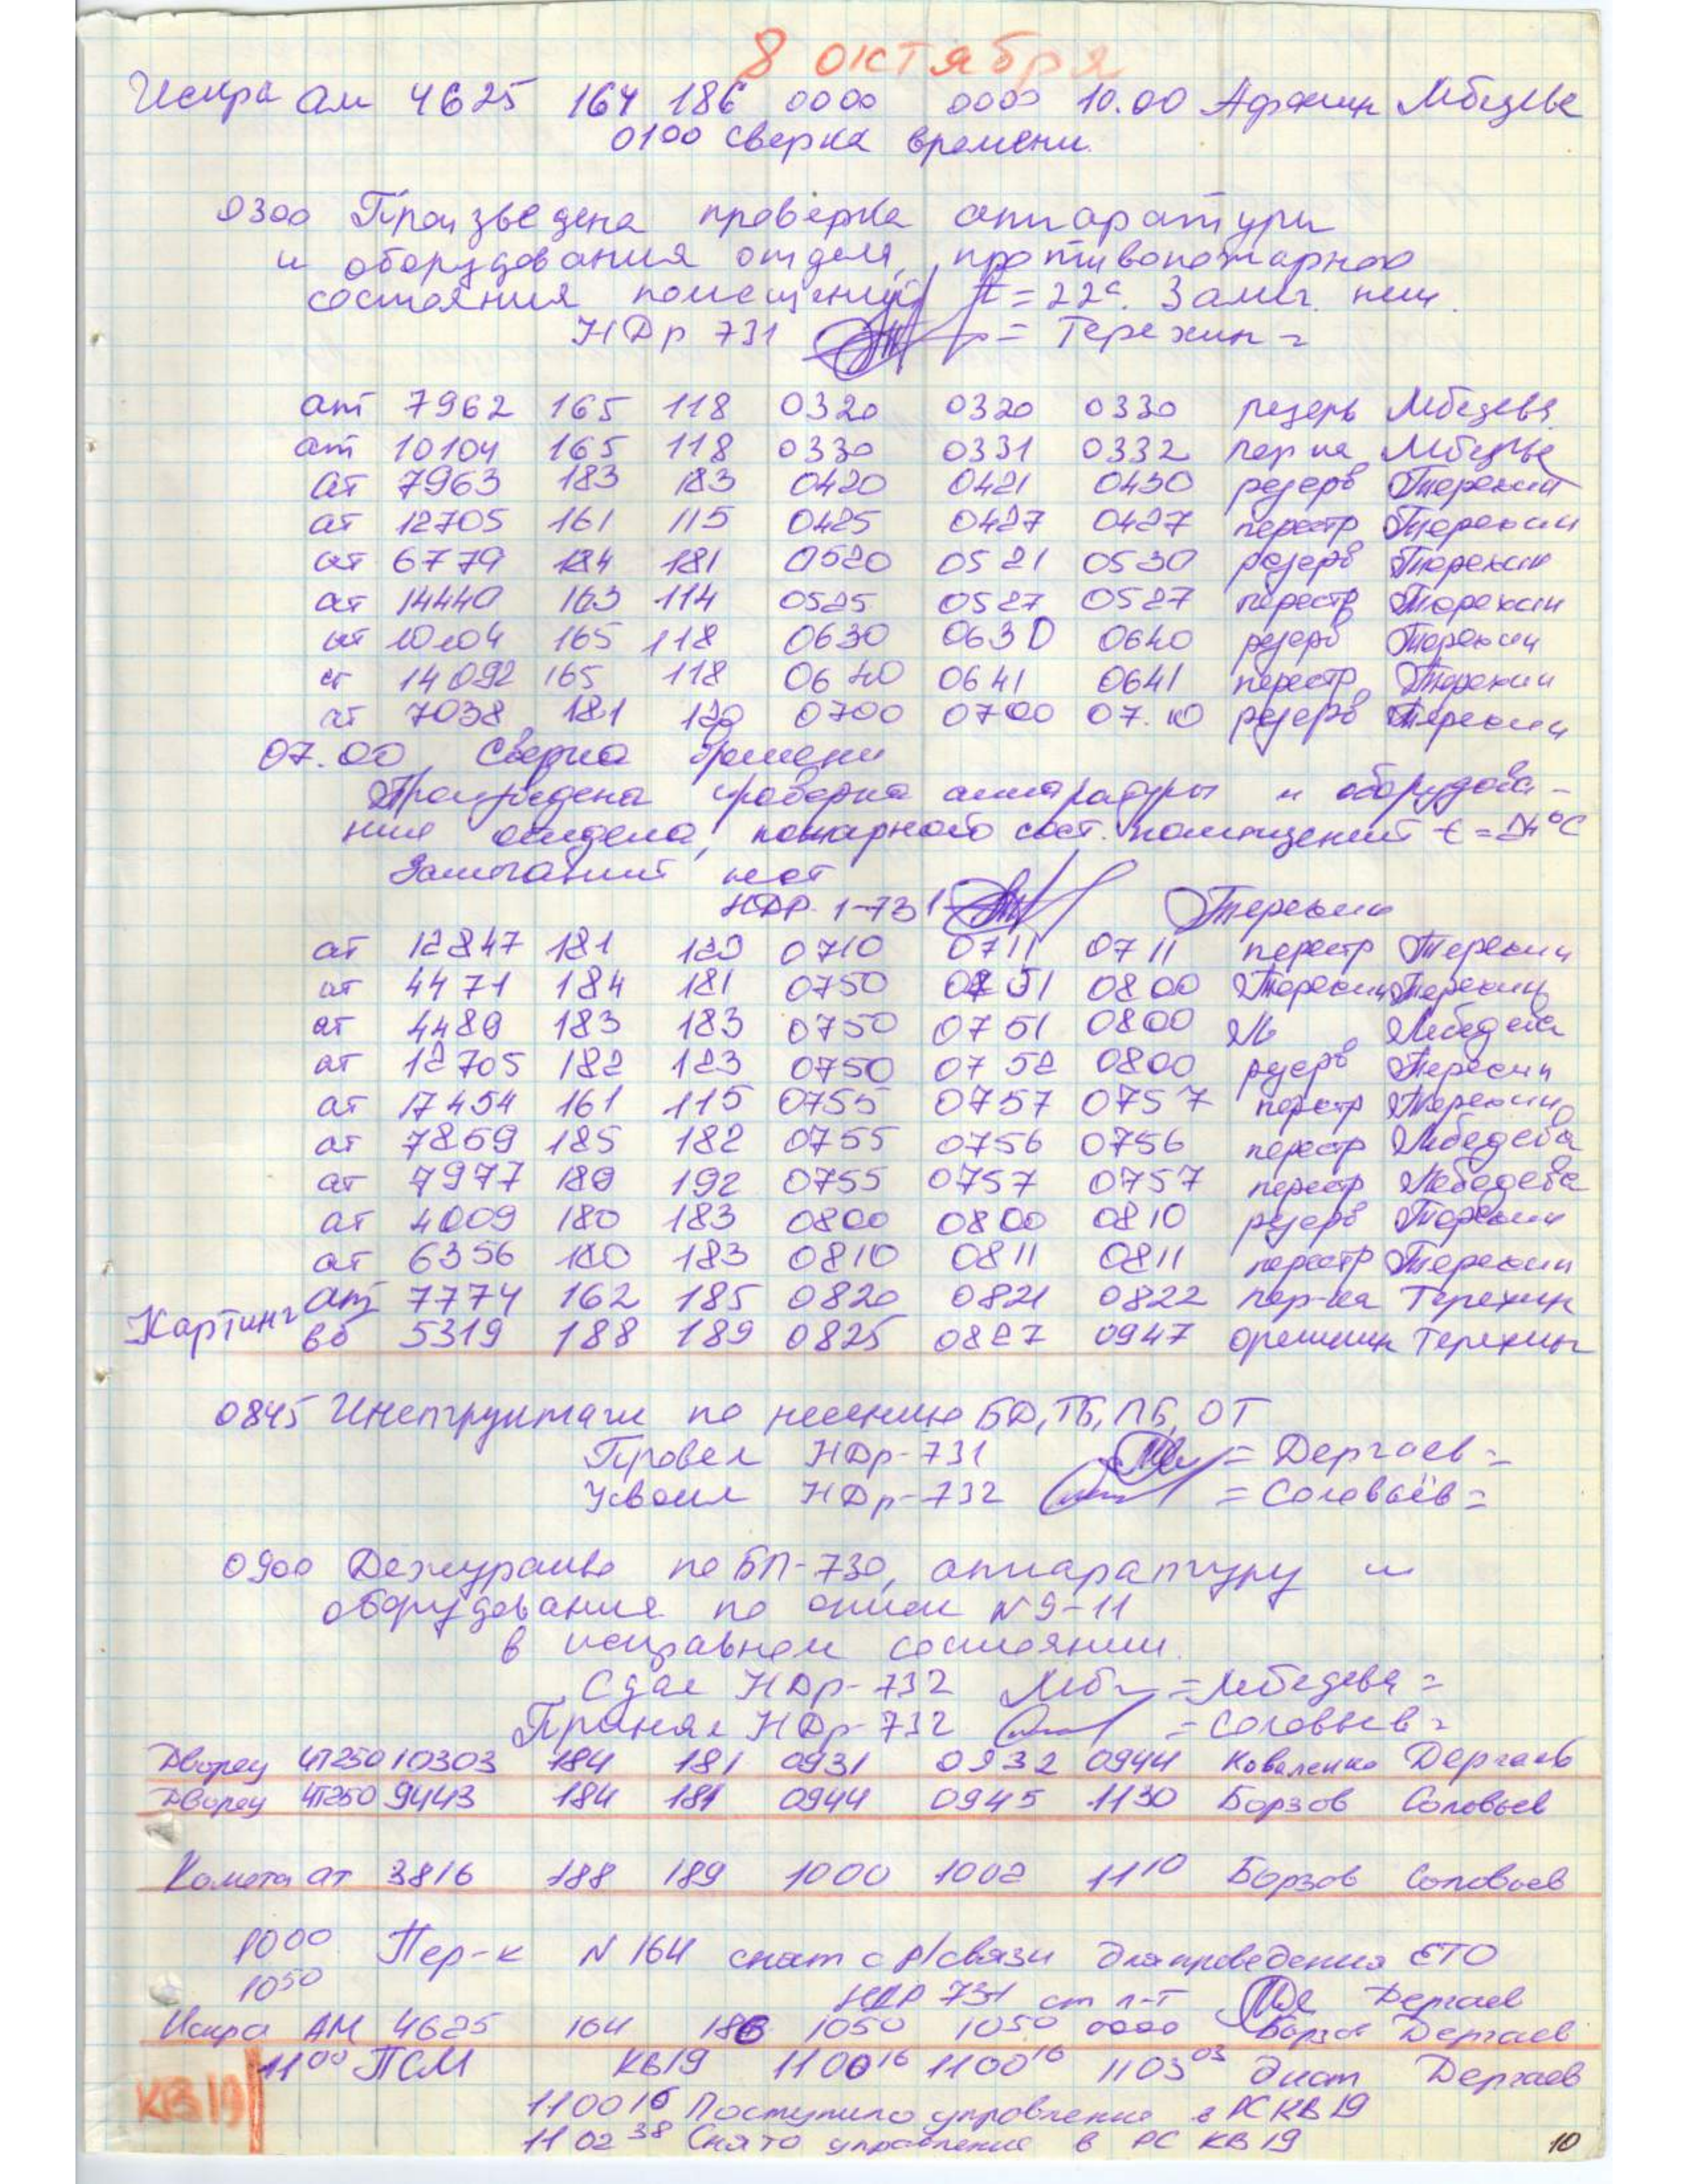 8 октября
Искра ам 4625 164 186 0000 0000 10.00 Афонин Лебедева
0100 сверка времени.
0300 Произведена проверка аппаратуры
и оборудования отдела, противопожарное
состояния помещений t=22с. Замеч. нет.
НДр 731 = Терехин =
ат 7962 165 118 0320 0320 0330 резерв Лебедева
ат 10104 165 118 0330 0331 0332 пер-ка Лебедева
ат 7963 183 183 0420 0421 0430 резерв Терехин
ат 12705 161 115 0425 0427 0427 перестр Терехин
ат 6779 184 181 0520 0521 0530 резерв Терехин
ат 14440 163 114 0525 0527 0527 перестр Терехин
ат 10104 165 118 0630 0630 0640 резерв Терехин
ат 14092 165 118 0640 0641 0641 перестр Терехин
ат 7038 181 120 0700 0700 07.10 резерв Терехин
07.00 Сверка времени
Произведена проверка аппаратуры и оборудова-
ния отдела, пожарного сост. помещений t=24°С
Замечаний нет
НДР 1-731 Терехин
ат 12847 181 120 0710 0711 0711 перестр Терехин
ат 4471 184 181 0750 0751 0800 Терехин Терехин
ат 4480 183 183 0750 0751 0800 Лебедева
ат 12705 182 123 0750 0752 0800 резерв Терехин
ат 17454 161 115 0755 0757 0757 перестр Терехин
ат 7869 185 182 0755 0756 0756 перестр Лебедева
ат 7977 180 192 0755 0757 0757 перестр Лебедева
ат 4009 180 183 0800 0800 0810 резерв Терехин
ат 6356 180 183 0810 0811 0811 перестр Терехин
ат 7774 162 185 0820 0821 0822 пер-ка Терехин
Картинг вб 5319 188 189 0825 0827 0947 Орешкин Терехин
0845 Инструктаж по несению БД, ТБ, ПБ, ОТ
Провел НДр-731 = Дергаев =
Усвоил НДр-732 = Соловьёв =
0900 Дежурство по БП-730, аппаратуру и
оборудования по описи N9-11
в исправном состоянии.
Сдал НДр-732 Леб = Лебедева =
Принял НДр-732 = Соловьев =
Дворец ЧТ250 10303 184 181 0931 0932 0944 Коваленко Дергаев
Дворец ЧТ250 9443 184 181 0944 0945 1130 Борзов Соловьев
Комета ат 3816 188 189 1000 1002 1110 Борзов Соловьев
1000 Пер-к N 164 снят с р/связи для проведения ЕТО
1050
НДР 731 ст л-т Дергаев
Искра АМ 4625 164 186 1050 1050 0000 Борзов Дергаев
1100 ПСМ КВ19 110016 110016 110303 дист Дергаев
КВ19
110016 Поступило управление в РС КВ19
110238 Снято управление в РС КВ19
10